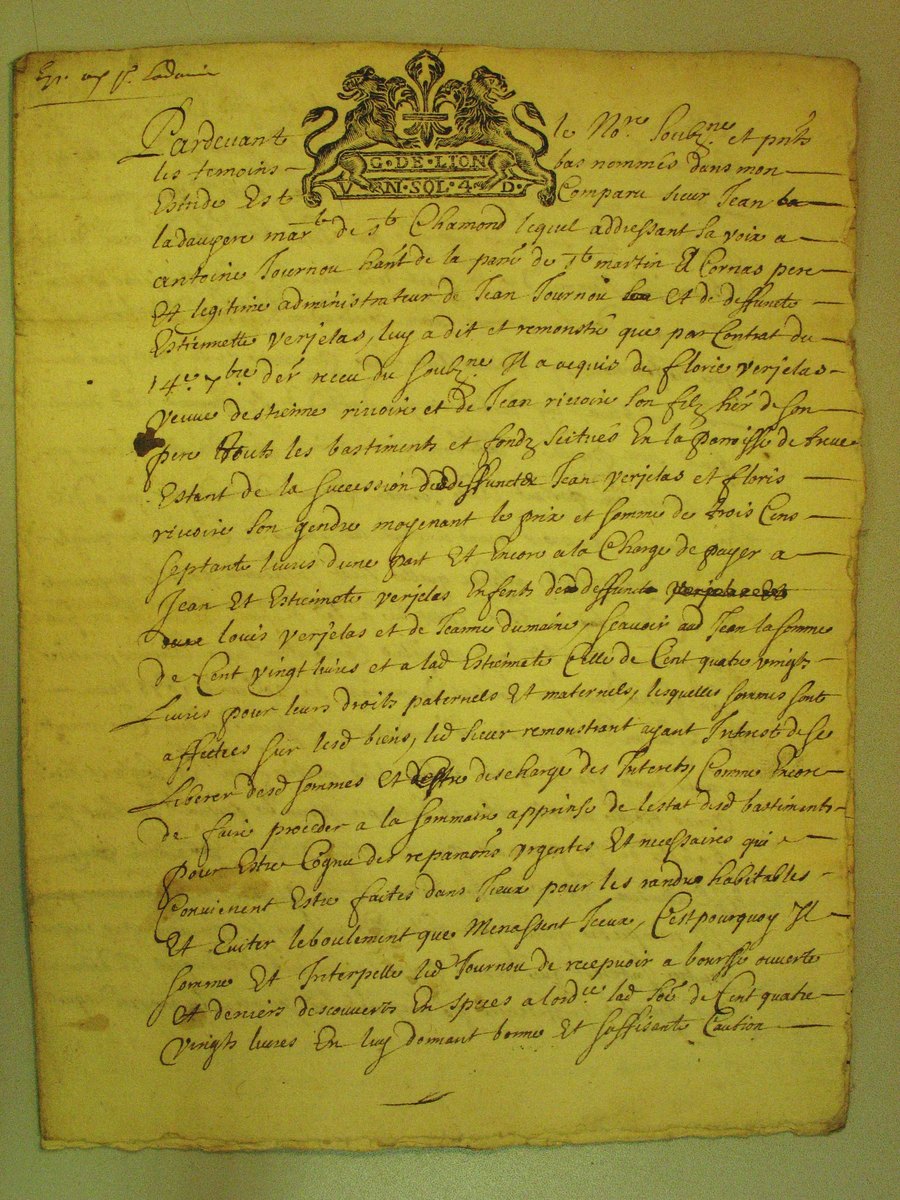 Pardevant le No.re Soubz.ne et pnts
G·DE·LION
VN·SOL·4·D·
les temoins bas nommés dans mon
Estude Est Comparu sieur Jean
ladauyere mar.t de S.t Chamond lequel addressant sa voix a
antoine Tournou ha̅nt de la par̅e de S.t martin A Cornas pere
Et legitime administrateur de Jean Tournou et de deffuncte
Estiennette verjelas, luy a dit et remonstré que par Contrat du
14.e 7.bre der̅ receu du soubz.ne Il a acquis de florie verjelas
veuve destiene rivoire et de Jean rivoire son filz her̅ de son
pere touts les bastiments et fondz scitués En la parroisse de
Estant de la sucession de deffunct Jean verjelas et floris
rivoire son gendre moyenant le prix et somme de trois Cens
septante livres dune part Et Encore a la Charge de payer a
Jean Et Estiennete verjelas Enfents de deffunct
louis verjelas et de Jeanne dumaine, scavoir aud Jean la somme
de Cent vingt livres et a lad Estiennete Celle de Cent quatre vingts
Livres pour leurs droits paternels Et maternels, lesquelles sommes sont
affectées sur lesd biens, led sieur remonstrant ayant Interest de se
Liberer desd sommes Et destre descharge des Interets, Comme Encore
de faire proceder a la sommaire apprinse de lestat desd bastiments
pour Estre Cognu des repara̅ons urgentes Et necessaires qui
Convienent Estre faites dans Iceux pour les randre habitables
Et Eviter leboulement que Menassent Iceux, C'est pourquoy Il
somme Et Interpelle led Tournou de recepvoir a bourse ouverte
et deniers descouverts En speces a lord.ce lad so̅e de Cent quatre
vingts livres En luy donnant bonne Et suffisante Caution